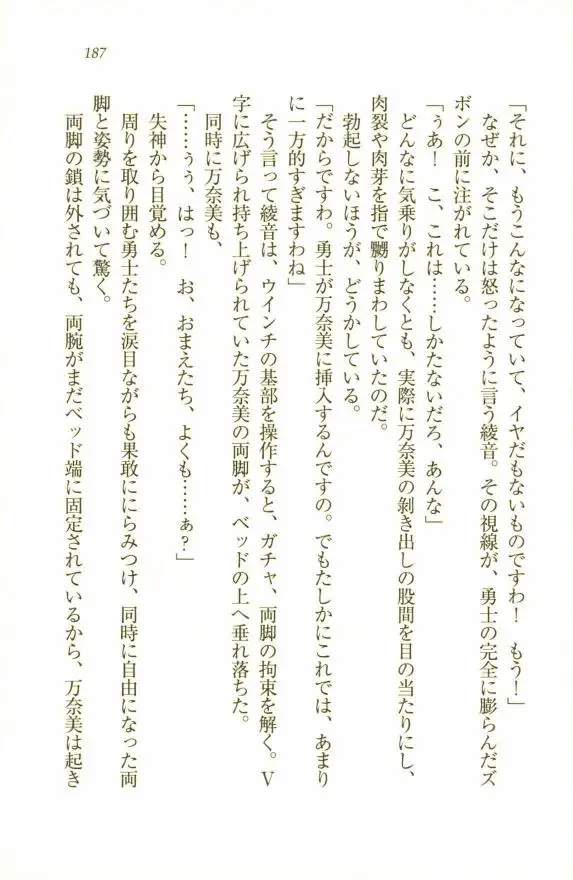 187
「それに、もうこんなになっていて、イヤだもないものですわ！　もう！」
なぜか、そこだけは怒ったように言う綾音。その視線が、勇士の完全に膨らんだズ
ボンの前に注がれている。
「うあ！　こ、これは……しかたないだろ、あんな」
どんなに気乗りがしなくとも、実際に万奈美の剝き出しの股間を目の当たりにし、
肉裂や肉芽を指で嬲りまわしていたのだ。
勃起しないほうが、どうかしている。
「だからですわ。勇士が万奈美に挿入するんですの。でもたしかにこれでは、あまり
に一方的すぎますわね」
そう言って綾音は、ウインチの基部を操作すると、ガチャ、両脚の拘束を解く。Ｖ
字に広げられ持ち上げられていた万奈美の両脚が、ベッドの上へ垂れ落ちた。
同時に万奈美も、
「……ぅぅ、はっ！　お、おまえたち、よくも……ぁ？」
失神から目覚める。
周りを取り囲む勇士たちを涙目ながらも果敢ににらみつけ、同時に自由になった両
脚と姿勢に気づいて驚く。
両脚の鎖は外されても、両腕がまだベッド端に固定されているから、万奈美は起き